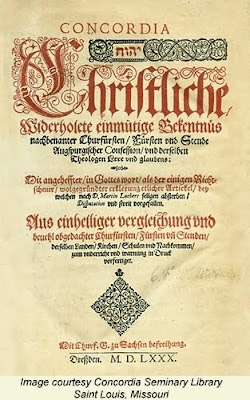 CONCORDIA
יהוה
Christliche,
Widerholete einmütige Bekentnüs
nachbenanter Churfürsten / Fürsten vnd Stende
Augspurgischer Confession / vnd derselben
Theologen Lere vnd glaubens:
Mit angeheffter / in Gottes wort / als der einigen Richt-
schnur / wolgegründter erklerung etlicher Artickel / bey
welchen nach D. Martin Luthers seligen absterben /
Disputation vnd streit vorgefallen.
Aus einhelliger vergleichung vnd
beuehl obgedachter Churfürsten / Fürsten vñ Stenden /
derselben Landen / Kirchen / Schulen vnd Nachkommen /
zum vnderricht vnd warnung in Druck
vorfertiget.
Mit Churf. G. zu Sachsen befreihung.
Dreßden. M. D. LXXX.
Image courtesy Concordia Seminary Library
Saint Louis, Missouri